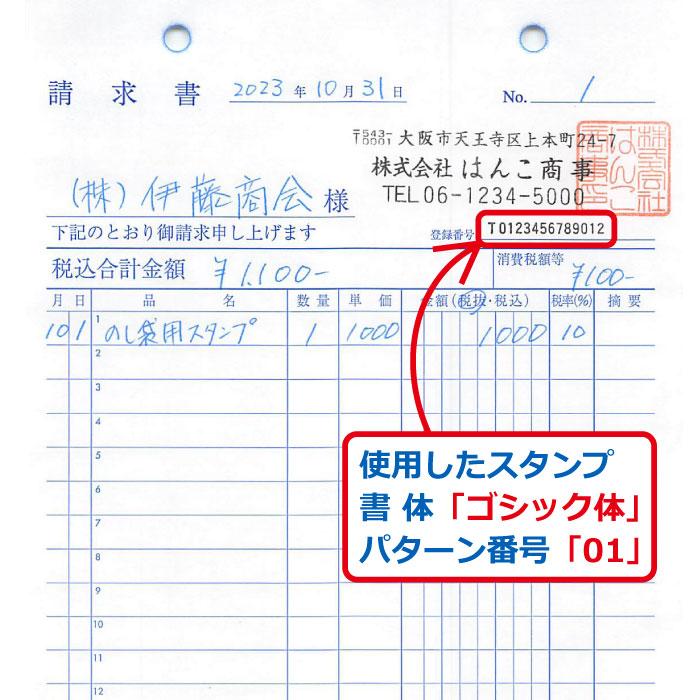 請求書 2023年10月31日 No. 1
〒543-0001 大阪市天王寺区上本町24-7
株式会社 はんこ商事
TEL06-1234-5000
株式会社はんこ商事印
(株)伊藤商会 様
下記のとおり御請求申し上げます
登録番号 T0123456789012
税込合計金額 ¥1,100-
消費税額等 ¥100-
月 日 品名 数量 単価 金額(税抜・税込) 税率(%) 摘要
10 1 1 のし袋用スタンプ 1 1000 1000 10
2
3
4
5
6
7
8
9
10
11
12
使用したスタンプ
書体「ゴシック体」
パターン番号「01」